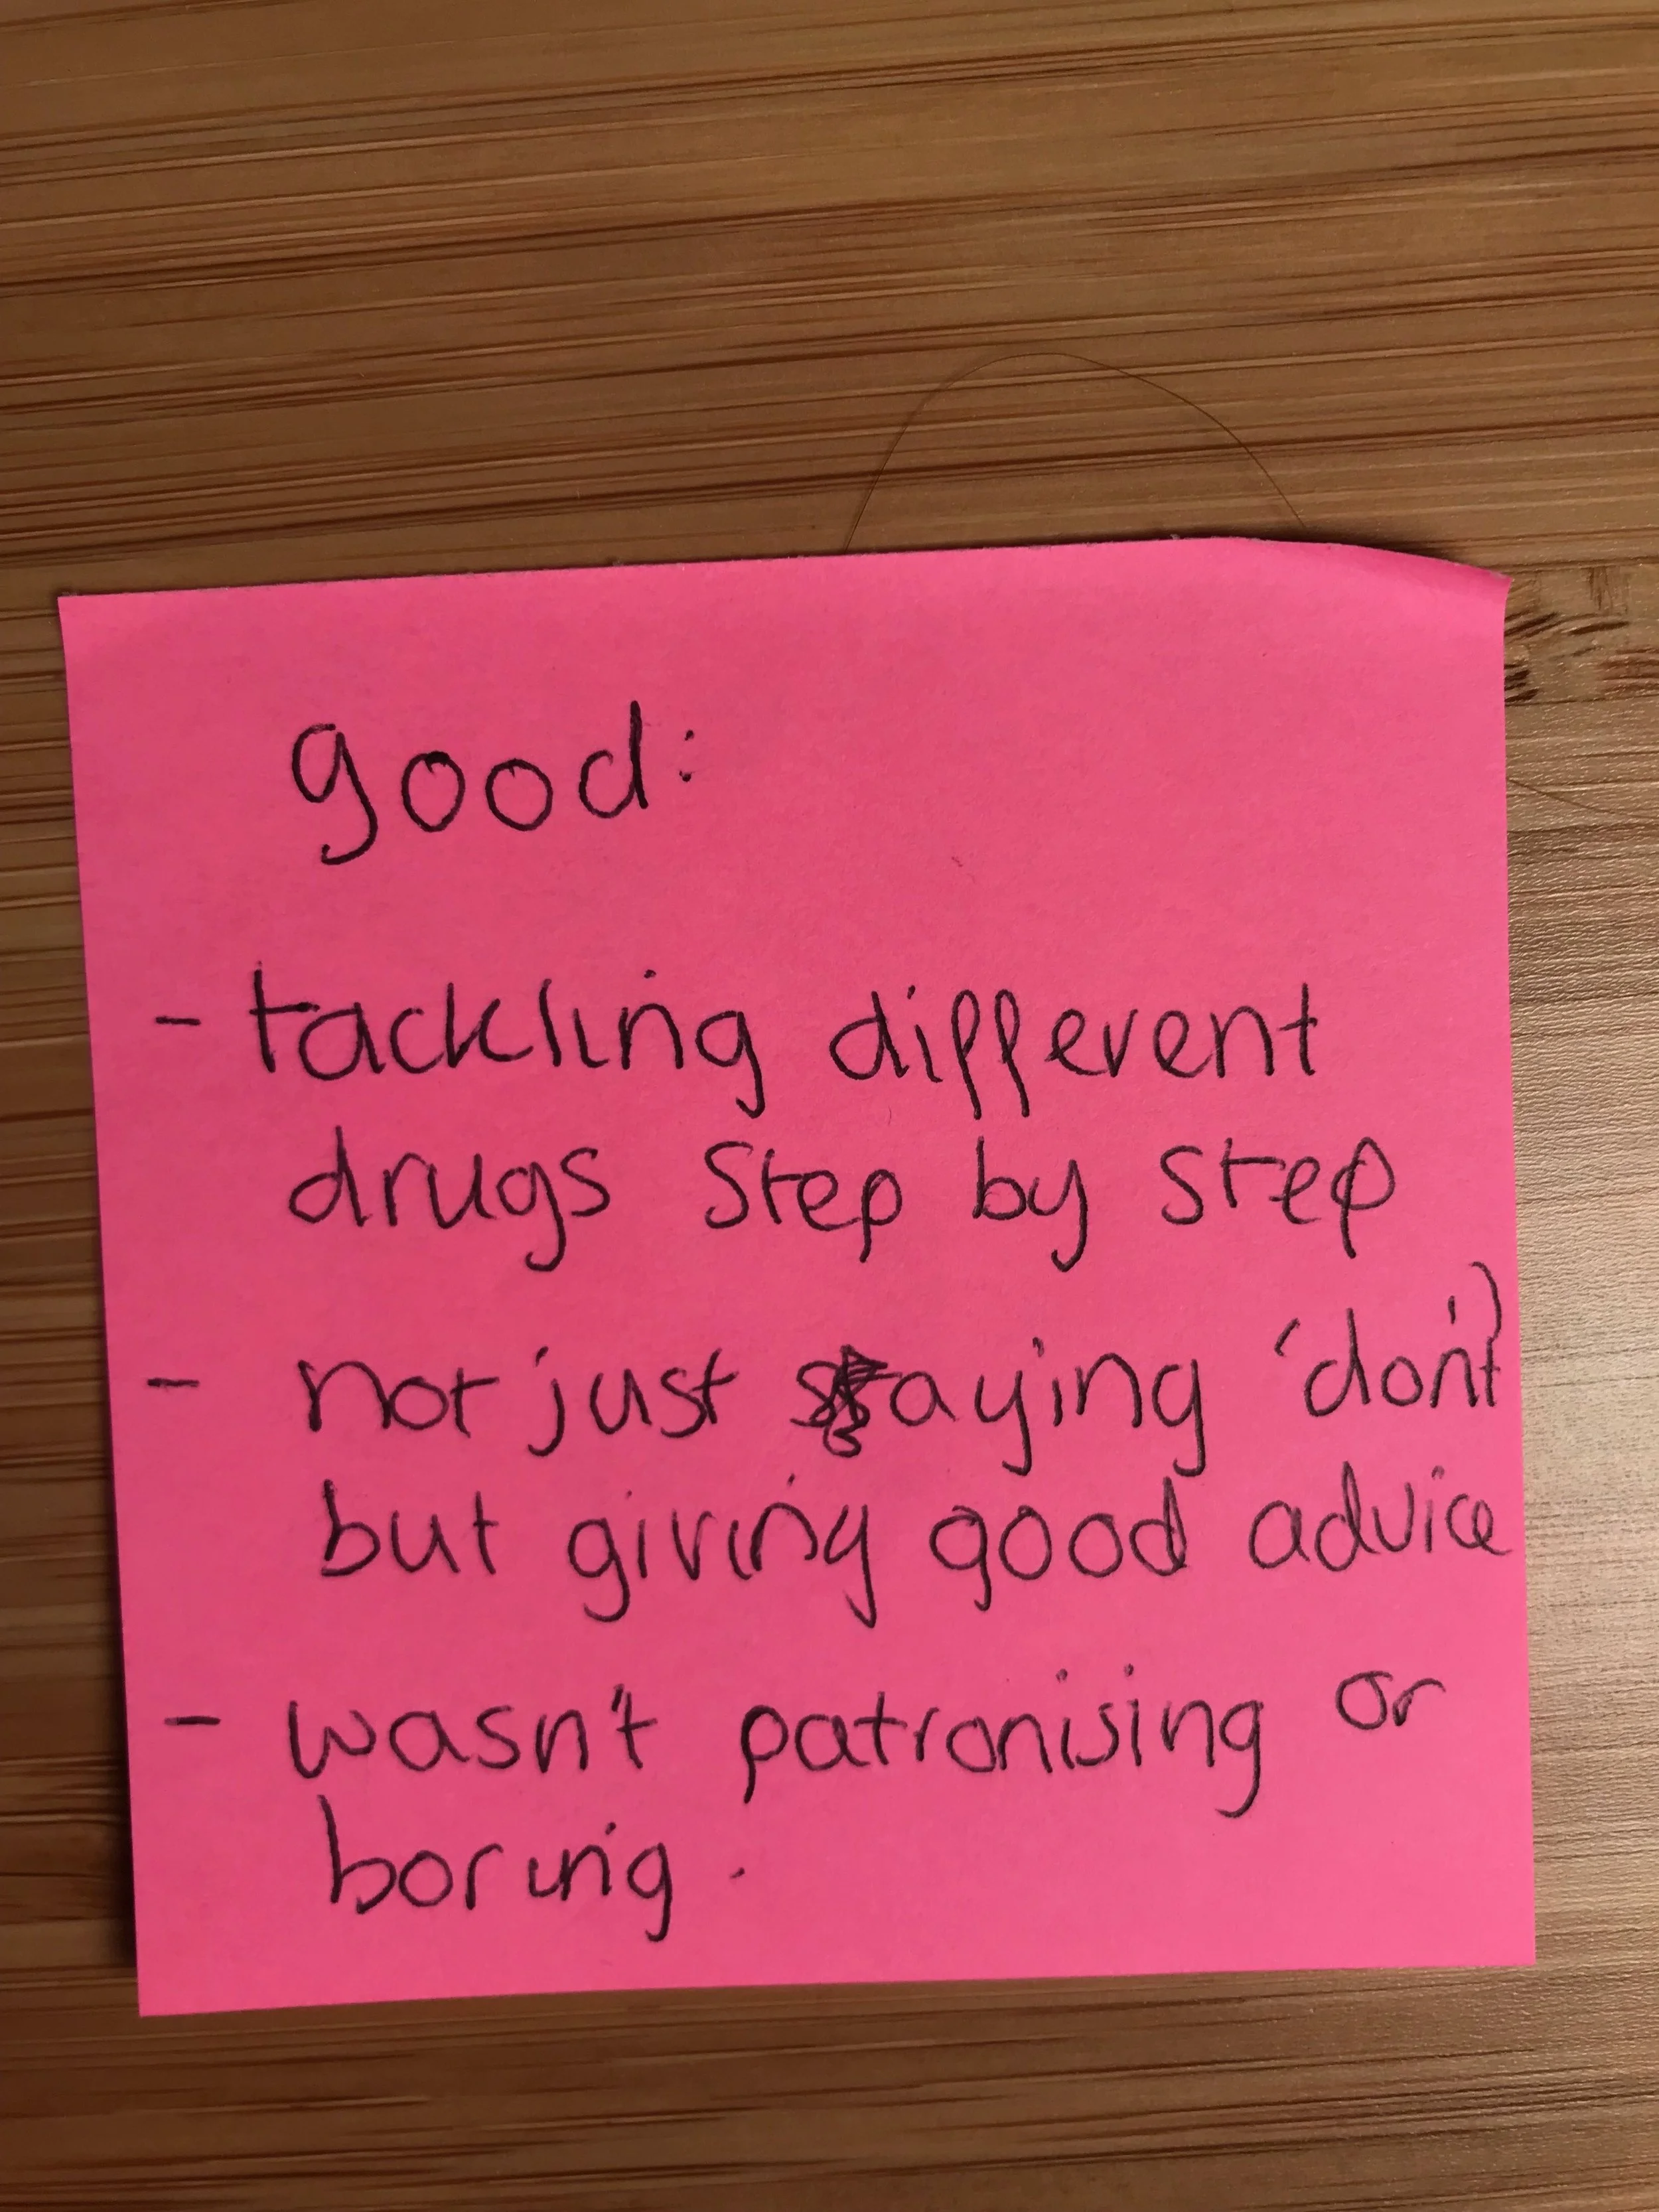 good:
- tackling different
drugs step by step
- not just saying 'don't'
but giving good advice
- wasn't patronising or
boring.